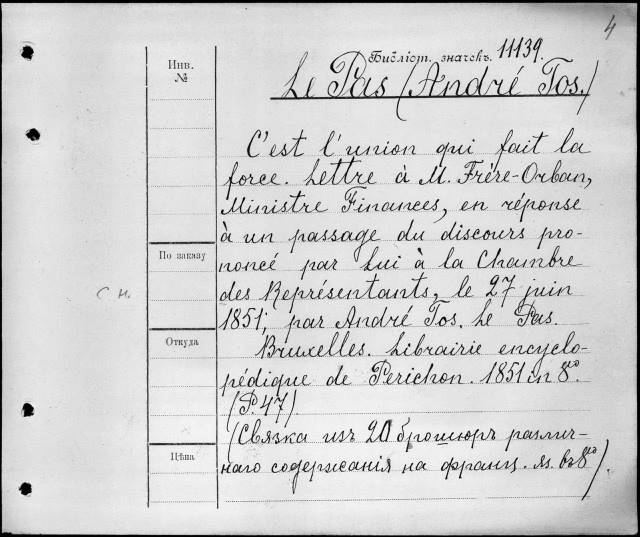 4
Библіот. значекъ. 11139.
Инв.
№
Le Pas (André Tos.)
C'est l'union qui fait la
force. Lettre à M. Frère-Orban,
Ministre Finances, en réponse
à un passage du discours pro-
noncé par lui à la Chambre
По заказу
des Représentants, le 27 juin
С н.
1851; par André Tos. Le Pas.
Откуда
Bruxelles. Librairie encyclo-
pédique de Perichon. 1851 in 8vo.
(P. 47).
(Связка изъ 20 брошюръ различ-
Цѣна
наго содержанія на франц. яз. въ 8vo).